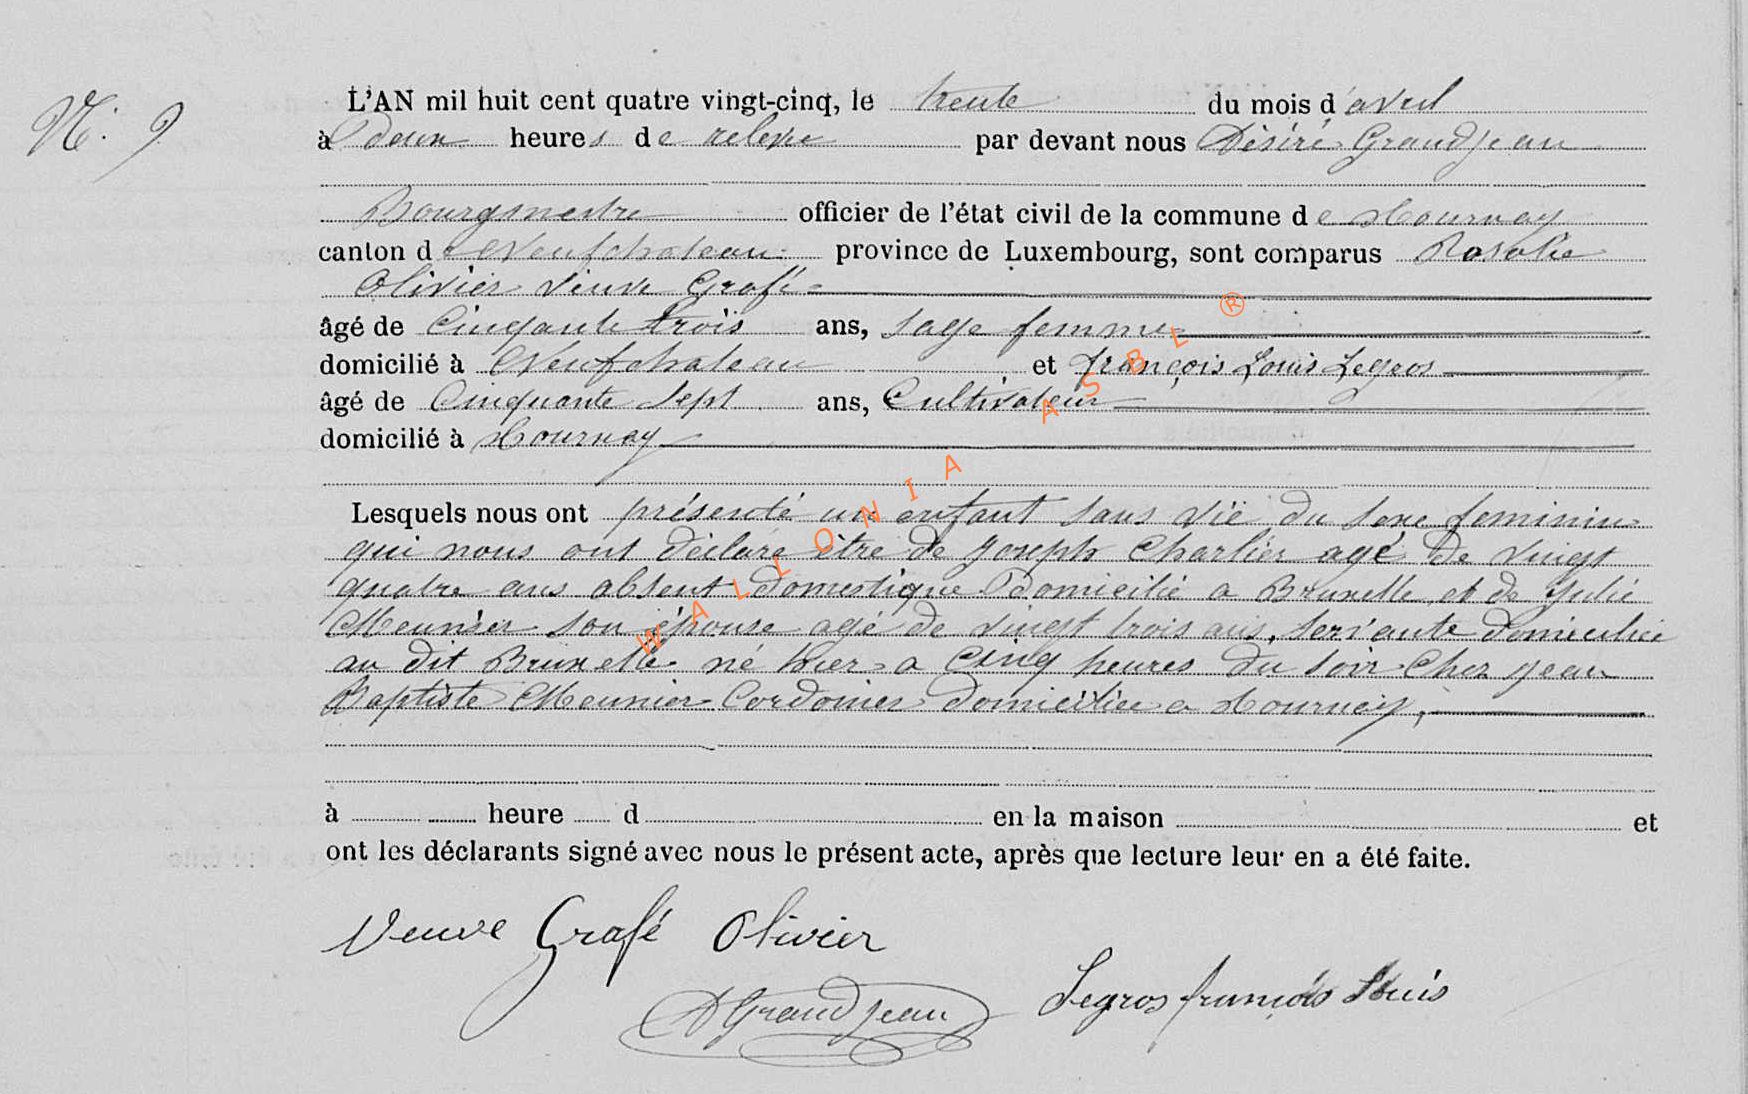 N.° 9
L'AN mil huit cent quatre vingt-cinq, le trente du mois d'avril
à deux heures de relevée par devant nous Désiré Grandjean
Bourgmestre officier de l'état civil de la commune de Tournay
canton de Neufchateau province de Luxembourg, sont comparus Rosalie
Olivier veuve Grafé
âgé de Cinquante trois ans, sage femme
domicilié à Neufchateau et François Louis Legros
âgé de Cinquante Sept ans, Cultivateur
domicilié à Tournay
Lesquels nous ont présenté un enfant sans vie du sexe feminin
qui nous ont déclaré être de Joseph Charlier agé de vingt
quatre ans absent domestique Domicilié a Bruxelle et de Julie
Meunier son épouse agé de vingt trois ans, servante domiciliée
au dit Bruxelle né hier a Cinq heures du soir chez Jean
Baptiste Meunier Cordonier domiciliée a Tournay,
à heure d en la maison et
ont les déclarants signé avec nous le présent acte, après que lecture leur en a été faite.
Veuve Grafé Olivier
DGrandjean Legros françois Louis
WALLONIA ASBL ®